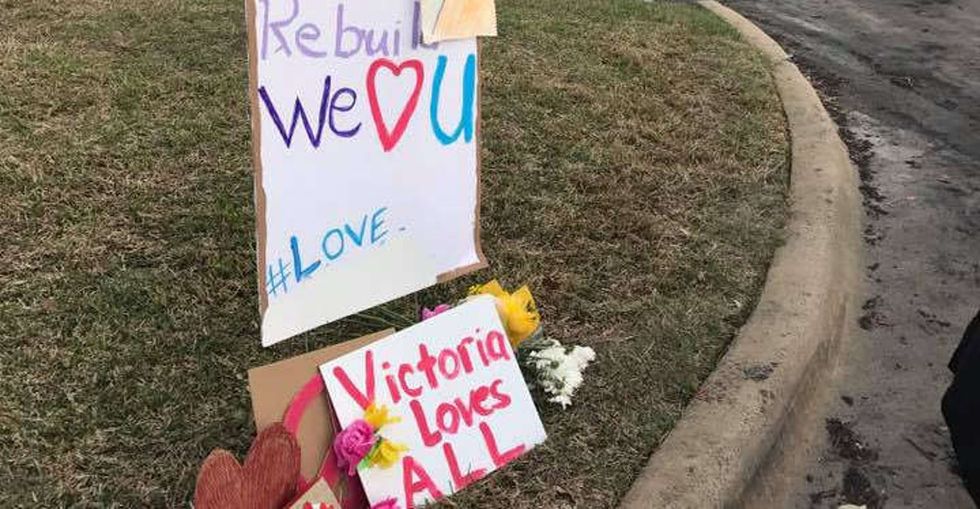 Rebuild
We ♡ U
#LOVE.
Victoria
Loves
ALL